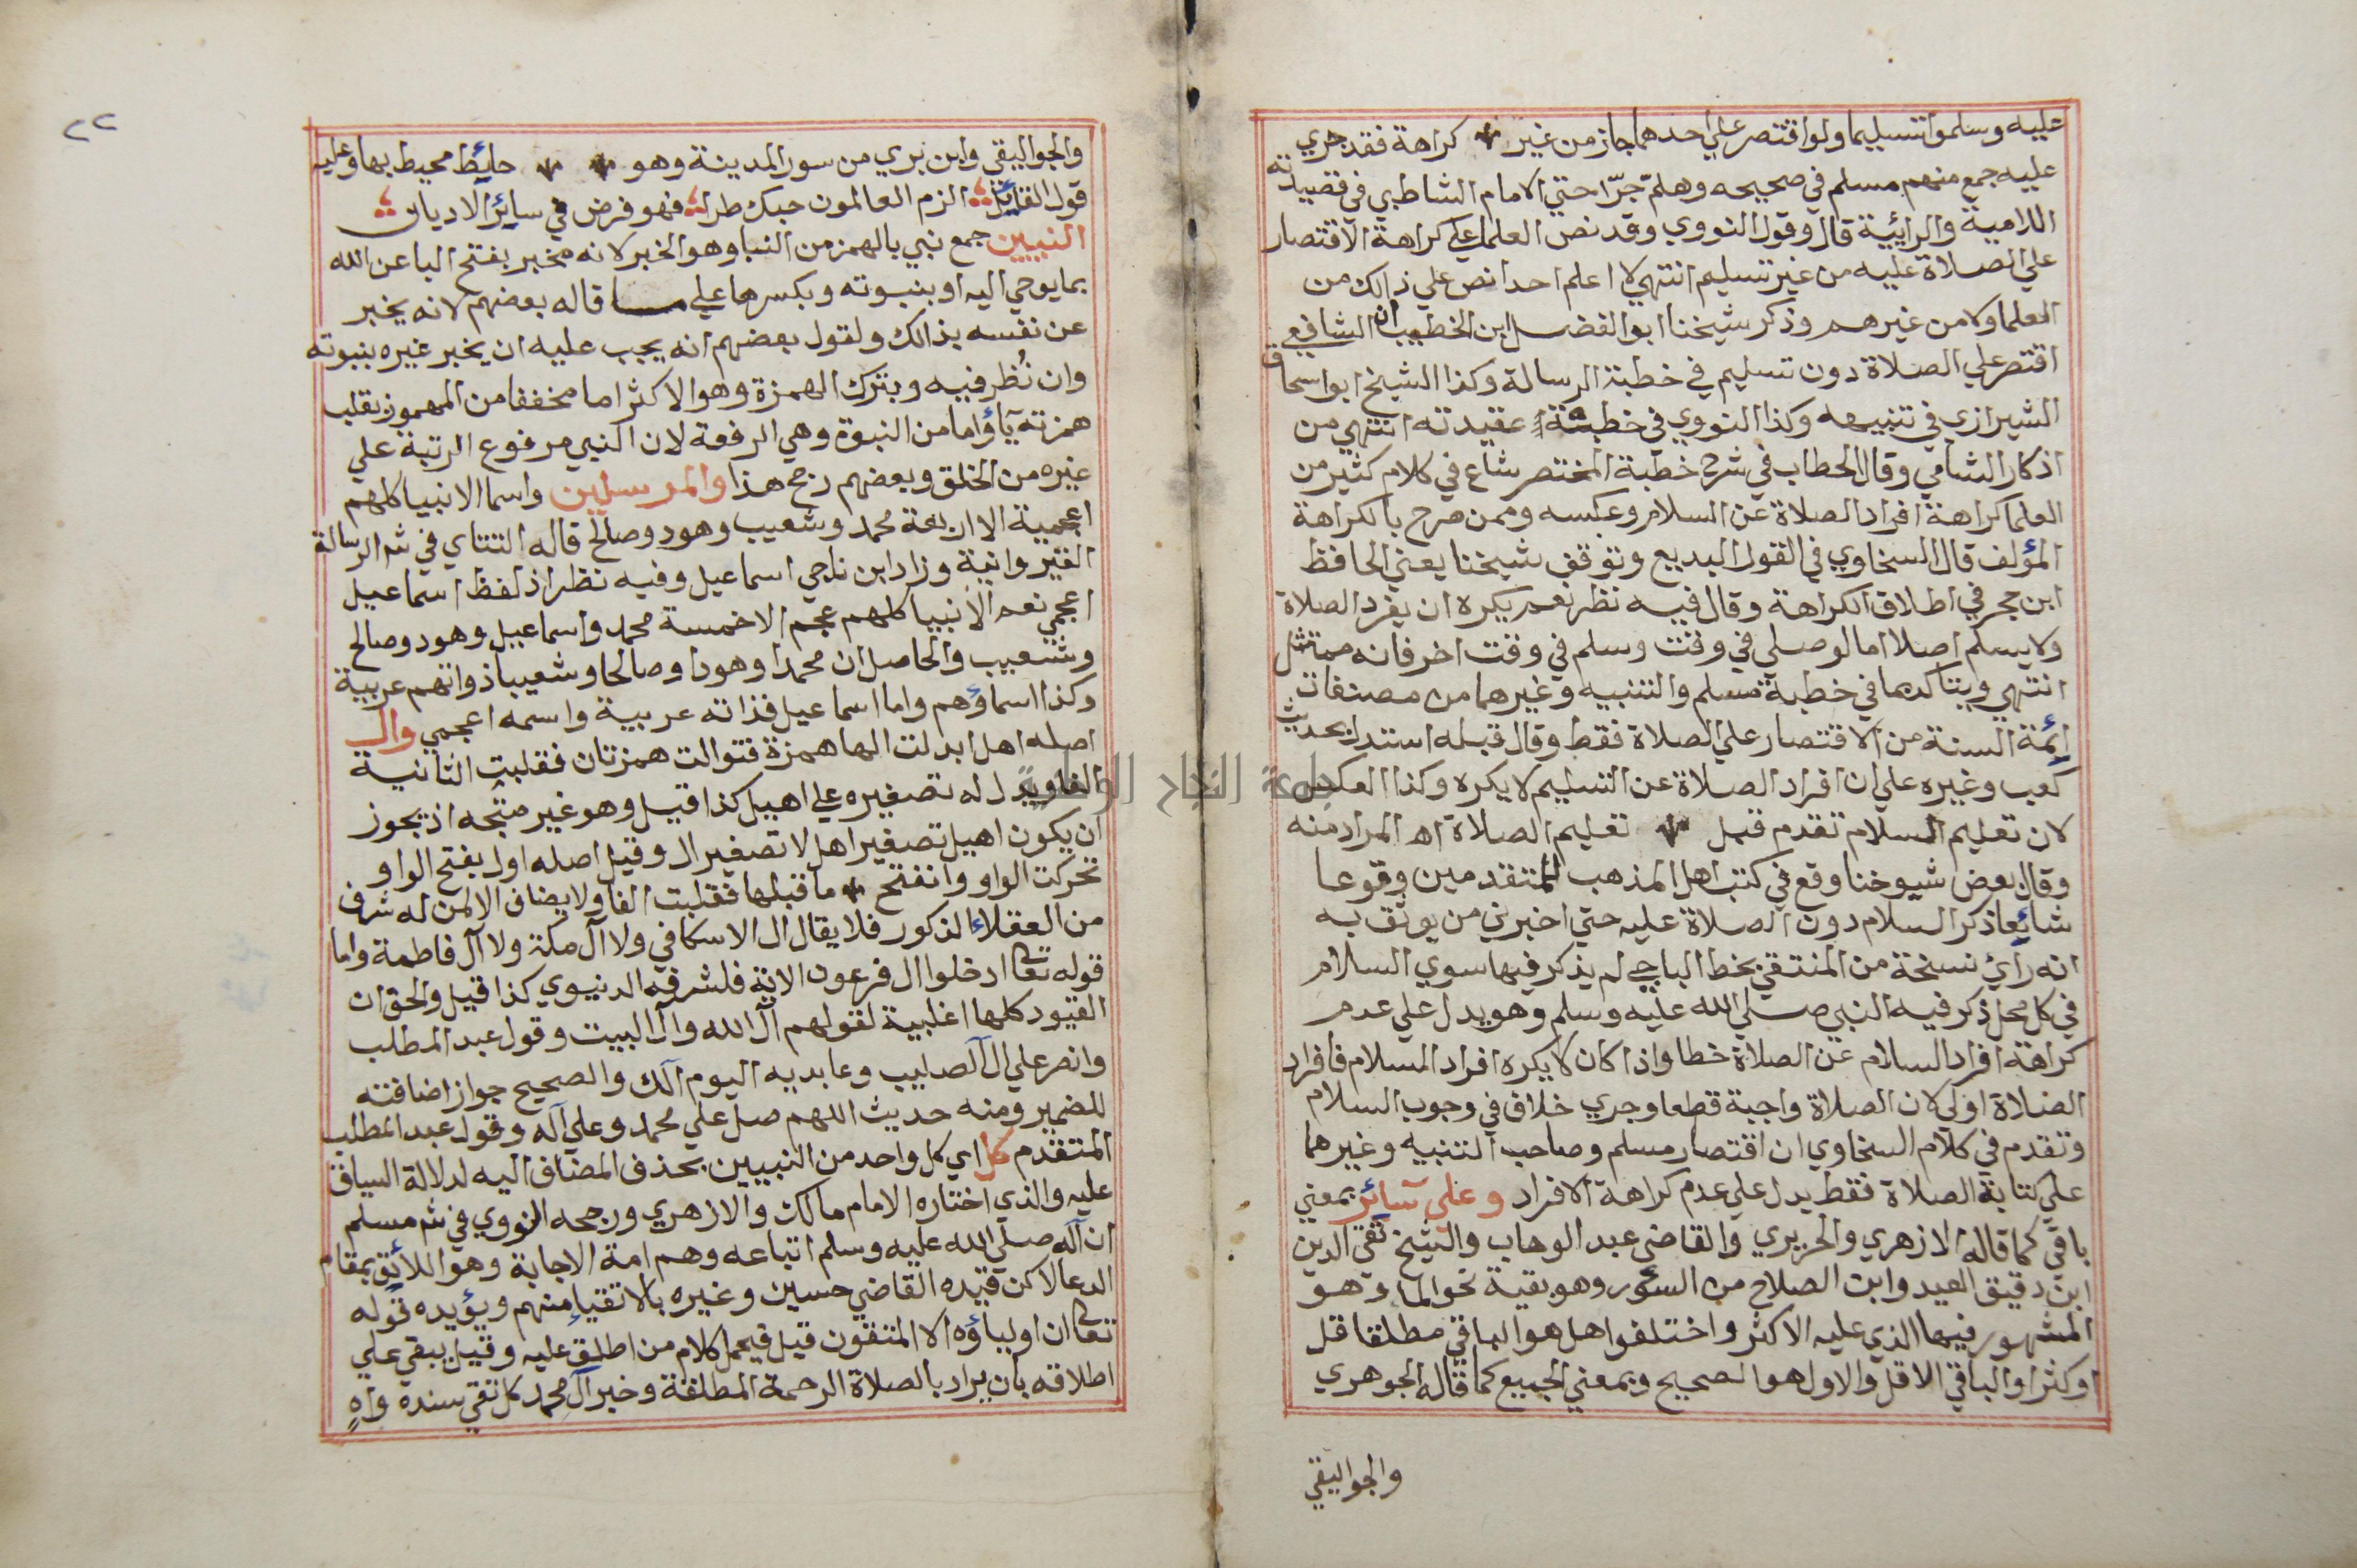 عليه وسلموا تسليما ولو اقتصر علي احدهما جاز من غير كراهة فقد جري
عليه جمع منهم مسلم في صحيحه وهلم جرّا حتي الامام الشاطبي في قصيدته
اللامية والرايئية قال وقول النووي وقد نص العلما علي كراهة الاقتصار
علي الصلاة عليه من غير تسليم انتهي لا اعلم احدا نص علي ذالك من
العلما ولا من غيرهم وذكر شيخنا ابو الفضل ابن الخطيب ان الشافعي
اقتصر علي الصلاة دون تسليم في خطبة الرسالة وكذا الشيخ ابو اسحاق
الشيرازي في تنبيهه وكذا النووي في خطبة عقيدته انتهي من
اذكار الشامي وقال الحطاب في شرح خطبة المختصر شاع في كلام كثير من
العلما كراهة افراد الصلاة عن السلام وعكسه وممن صرح بالكراهة
المؤلف قال السخاوي في القول البديع وتوقف شيخنا يعني الحافظ
ابن حجر في اطلاق الكراهة وقال فيه نظر نعم يكره ان يفرد الصلاة
ولا يسلم اصلا اما لو صلي في وقت وسلم في وقت اخر فانه ممتثل
انتهي ويتاكد بما في خطبة مسلم والتنبيه وغيرهما من مصنفات
ائمة السنة من الاقتصار علي الصلاة فقط وقال قبله استدل بحديث
كعب وغيره علي ان افراد الصلاة عن التسليم لا يكره وكذا العكس
لان تعليم السلام تقدم قبل تعليم الصلاة اه المراد منه
وقال بعض شيوخنا وقع في كتب اهل المذهب للمتقدمين وقوعا
شايعا ذكر السلام دون الصلاة عليه حتي اخبرني من يوثق به
انه راي نسخة من المنتقي بخط الباجي لم يذكر فيها سوي السلام
في كل محل ذكر فيه النبي صلي الله عليه وسلم وهو يدل علي عدم
كراهة افراد السلام عن الصلاة خطا واذا كان لا يكره افراد السلام فافراد
الصلاة اولي لان الصلاة واجبة قطعا وجري خلاف في وجوب السلام
وتقدم في كلام السخاوي ان اقتصار مسلم وصاحب التنبيه وغيرهما
علي كتابة الصلاة فقط يدل علي عدم كراهة الافراد وعلي سائر بمعني
باقي كما قاله الازهري والحريري والقاضي عبد الوهاب والشيخ تقي الدين
ابن دقيق العيد وابن الصلاح من السؤر وهو بقية نحو الما وهو
المشهور فيها الذي عليه الاكثر واختلفوا هل هو الباقي مطلقا قل
او كثر او الباقي الاقل والاول هو الصحيح وبمعني الجميع كما قاله الجوهري
والجواليقي
٢٢
والجواليقي وابن بري من سور المدينة وهو حايط محيط بها وعليه
قول القايل الزم العالمون حبك طرا فهو فرض في ساير الاديان
النبيين جمع نبي بالهمز من النبا وهو الخبر لانه مخبر بفتح البا عن الله
بما يوحي اليه او بنبوته وبكسرها علي ما قاله بعضهم لانه يخبر
عن نفسه بذالك ولقول بعضهم انه يجب عليه ان يخبر غيره بنبوته
وان نُظر فيه وبترك الهمزة وهو الاكثر اما مخففا من المهموز بقلب
همزته يآ واما من النبوة وهي الرفعة لان النبي مرفوع الرتبة علي
غيره من الخلق وبعضهم رجح هذا والمرسلين واسما الانبيا كلهم
اعجمية الا اربعة محمد وشعيب وهود وصالح قاله التتاي في شم الرسالة
القيروانية وزاد ابن ناجي اسماعيل وفيه نظر اذ لفظ اسماعيل
اعجمي نعم الانبيا كلهم عجم الا خمسة محمد واسماعيل وهود وصالح
وشعيب والحاصل ان محمدا وهودا وصالحا وشعيبا ذواتهم عربية
وكذا اسماؤهم واما اسماعيل فذاته عربية واسمه اعجمي وال
اصله اهل ابدلت الها همزة فتوالت همزتان فقلبت الثانية
الفا ويدل له تصغيره علي اهيل كذا قيل وهو غير متجه اذ يجوز
ان يكون اهيل تصغير اهل لا تصغير ال وقيل اصله اول بفتح الواو
تحركت الواو وانفتح ما قبلها فقلبت الفا ولا يضاف الا لمن له شرف
من العقلاء الذكور فلا يقال ال الاسكافي ولا آل مكة ولا آل فاطمة واما
قوله تعا ادخلوا ال فرعون الاية فلشرفه الدنيوي كذا قيل والحق ان
القيود كلها اغلبية لقولهم آل الله وآل البيت وقول عبد المطلب
وانصر علي آل الصليب وعابديه اليوم آلك والصحيح جواز اضافته
للضمير ومنه حديث اللهم صل علي محمد وعلي آله وقول عبد المطلب
المتقدم كل اي كل واحد من النبيين بحذف المضاف اليه لدلالة السياق
عليه والذي اختاره الامام مالك والازهري ورجحه النووي في شم مسلم
ان آله صلي الله عليه وسلم اتباعه وهم امة الاجابة وهو اللائق بمقام
الدعا لاكن قيده القاضي حسين وغيره بالاتقياء منهم ويؤيده قوله
تعا ان اولياؤه الا المتقون قيل فيحمل كلام من اطلق عليه وقيل يبقي علي
اطلاقه بان يراد بالصلاة الرحمة المطلقة وخبر آل محمد كل تقي سنده واهٍ